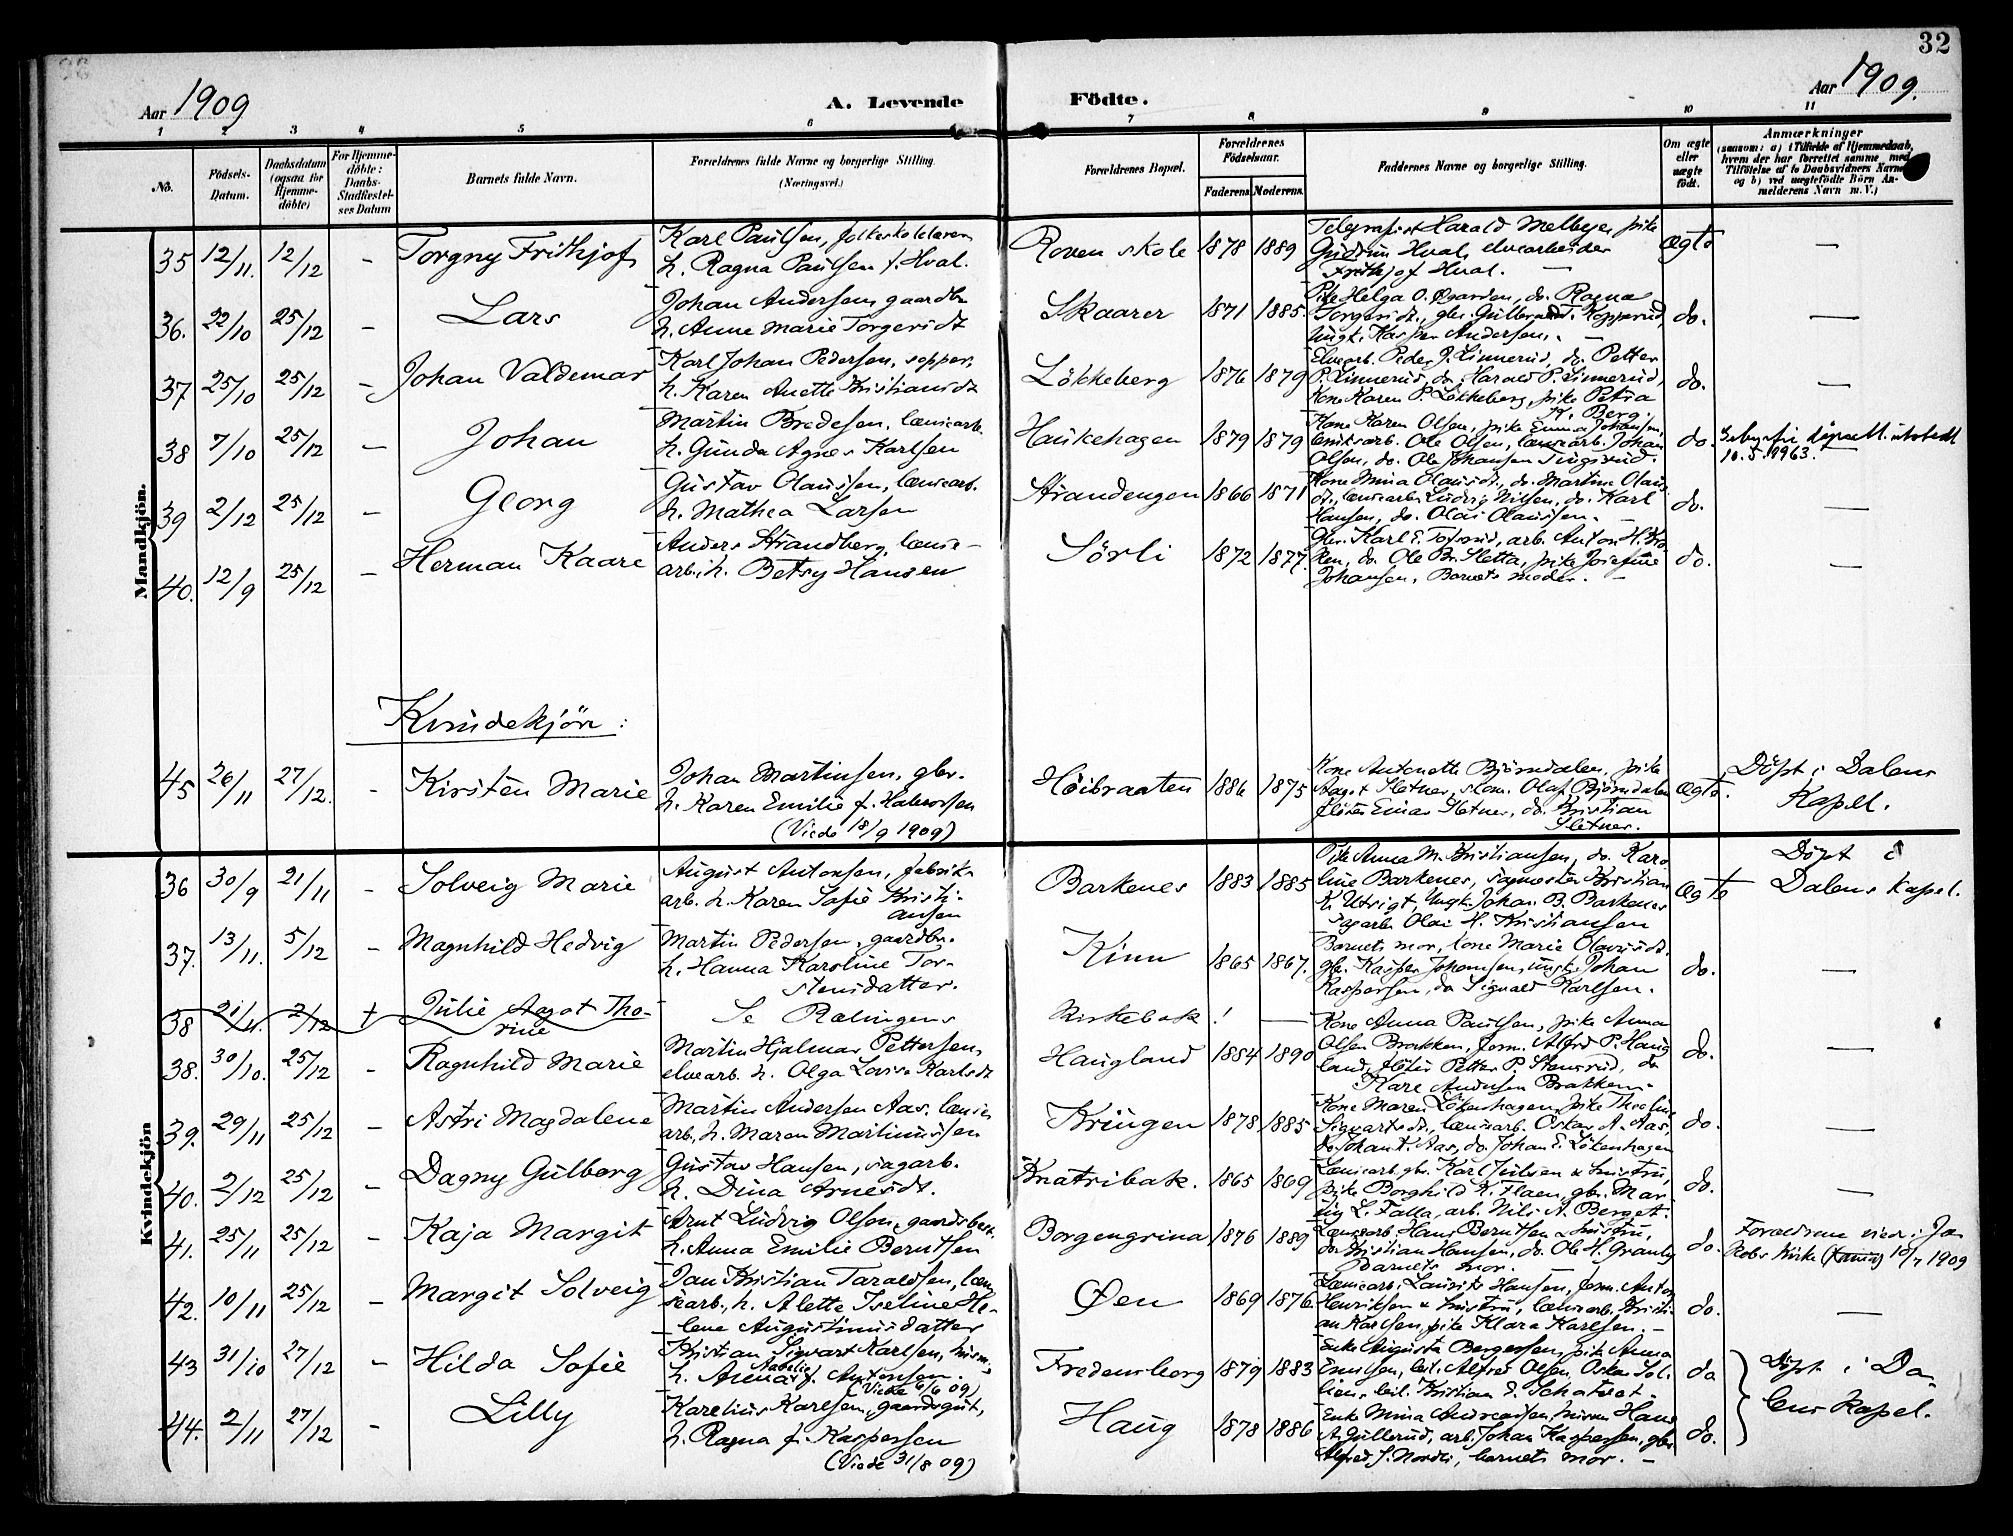 32
Aar 1909
A. Levende
Födte.
Aar 1909.
1 2 3 4 5 6 7 8 9 10 11
No.
Födsels-
Datum.
Daabsdatum
(ogsaa for
Hjemme-
döbte)
For Hjemme-
döbte:
Daabs-
Stadfæstel-
ses Datum
Barnets fulde Navn.
Forældrenes fulde Navne og borgerlige Stilling.
(Næringsvei.)
Forældrenes Bopæl.
Forældrenes
Födselsaar.
Faderens Moderens.
Faddernes Navne og borgerlige Stilling.
Om ægte
eller
uægte
födt.
Anmærkninger
(saasom: a) i Tilfælde af Hjemmedaab,
hvem der har forrettet samme med
Tilföielse af to Daabsvidners Navne
og b) ved uægtefödte Börn An-
melderens Navn m. V.)
Mandkjön.
35 12/11. 12/12 - Torgny Frithjof
Karl Paulsen, folkeskolelærer
h. Ragna Paulsen f. Hval.
Roven skole 1878 1889
Telegrafist Harald Melbye, pike
Gudrun Hval, elvearbeider
Frithjof Hval. —
ægte —
36. 22/10 25/12 - Lars
Johan Andersen, gaardbr.
h. Anne Marie Torgersdt
Skaarer 1871 1885.
Pike Helga O. Øgarden, do. Ragna
Torgersdt., gbr. Gulbrand T. Kopperud,
ungk. Kasper Andersen. —
do. —
37 25/10 25/12 - Johan Valdemar
Karl Johan Pedersen,
h. Karen Anette Kristiansdt
Lökkeberg 1876 1879
Elvearb. Peder P. Linnerud, do. Petter
P. Linnerud, do. Harald P. Linnerud,
Kone Karen P. Lökkeberg, pike Petra
K. Berg.
do. —
38 7/10 25/12 - Johan
Martin Bredesen, lænsearb.
h. Gunda Agnes Karlsen
Haukehagen 1879 1879
Kone Karen Olsen, pike Emma Johansen,
lensearb. Ole Olsen, lænsearb. Johan
Olsen, do. Ole Johansen Tingsrud.
do.
utstedt
10.5.1963.
39 2/12 25/12 - Georg
Gustav Olaussen, lænsearb.
h. Mathea Larsen
Strandengen 1866 1871
Kone Mina Olausdt., do. Martine Olaus-
dt., lænsearb. Ludvig Nilsen, do. Karl
Hansen, do. Olai Olaussen. —
do. —
40. 12/9 25/12 - Herman Kaare
Anders Strandberg, lænse-
arb. h. Betsy Hansen
Sörli 1872 1877.
Gbr. Karl E. Tofsrud, arb. Anton H.
do. Ole Br. Sletta, pike Josefine
Johansen, Barnets moder. —
do. —
Kvindekjön:
45 26/11 27/12. - Kirsten Marie
Johan Martinsen, gbr.
h. Karen Emilie f. Halvorsen
(Viede 18/9 1909)
Høibraaten 1886 1875
Kone Antonette Björndalen, pike
Aagot Sletner, skom. Olaf Björndalen
flöter Einar Sletner, do. Kristian
Sletner.
ægte.
Döpt i Dalens
Kapel.
Kvindekjön
36 30/9 21/11 - Solveig Marie
August Antonsen, fabrik-
arb. h. Karen Sofie Kristi-
ansen
Barkenes 1883 1885
Pike Anna M. Kristiansen, do. Karo
line Barkenes, sagmester Kristian
K. Utrigt, Ungk. Johan B. Barkenes
Sagarb. Olai H. Kristiansen
ægte
Döpt i
Dalens Kapel.
37. 13/11. 5/12 - Magnhild Hedvig
Martin Pedersen, gaardbr.
h. Hanna Karoline Tor-
stensdatter.
Kinn 1865 1867.
Barnets mor, kone Marie Olavusdt.
gbr. Kasper Johansen, ungk. Johan
Kaspersen, do Sigvald Karlsen.
do. —
38 21/4. 2/12 + Julie Aagot Tho-
rine
Se Rælingens
Kirkebok! —
38. 30/10. 25/12 - Ragnhild Marie
Martin Hjalmar Pettersen,
elvearb. h. Olga Lovise Karlsdt
Haugland 1884 1890
Kone Anna Paulsen, pike Anna
Olsen Brakken, form. Alfred P. Haug
land, flöter Petter P. Stensrud, do
Kare Andersen Brakken. —
do. —
39. 29/11 25/12 - Astri Magdalene
Martin Andersen Aas, lænse
arb. h. Maren Martinussen
Kringen 1878 1885
Kone Maren Lökenhagen, pike Theoline
Sigvartsdt., lænsearb. Oskar A. Aas,
do. Johan t. Aas, do. Johan E. Lökenhagen
do. —
40. 2/12 25/12 - Dagny Gulborg
Gustav Hansen, sagarb.
h. Dina Arnesdt.
Knatribak. 1865 1869
Lænsearb. gbr. Karl Julsen & hustru,
pike Borghild K. Flaen, gbr. Mar
L. Falla, arb. Nils A. Berget.
do. —
41. 25/11 25/12 - Kaja Margit
Arnt Ludvig Olsen, gaardsbest.
h. Anna Emilie Berntsen
Borgengrina 1876 1889
Lænsearb. Hans Berntsen & hustru,
do. Kristian Hansen, do. Ole H. Granby
Barnets mor. —
do.
Forældrene viede i Ja
kobs Kirke 10/7 1909
42. 10/11 25/12 - Margit Solveig
Jan Kristian Taraldsen, læn
searb., h. Alette Iseline He-
lene Augustinusdatter
Øen 1869 1876
Lænsearb. Laurits Hansen, form. Anton
Henriksen & hustru, lænsearb. Kristi-
an Karlsen, pike Klara Karlsen. —
do. —
43 31/10 27/12 - Hilda Sofie
Kristian Sigvart Karlsen,
h. Anna Nabelie f. Antonsen.
(Viede 6/6 09)
Fredensborg 1879 1883
Enke Augusta Bergersen, pike Anna
Emilsen, Alfred Olsen, Oskar Sol-
lien, Kristian
do
Döpt i Da-
lens Kapel.
44. 2/11 27/12 - Lilly
Karelius Karlsen, gaardsgut,
h. Ragna f. Kaspersen
(Viede 31/8 09)
Haug 1878 1886
Enke Mina Andreassen, Hans
A. Gullerud, arb. Johan Kaspersen, gbr.
Alfred S. Nordli, barnets mor. —
do.